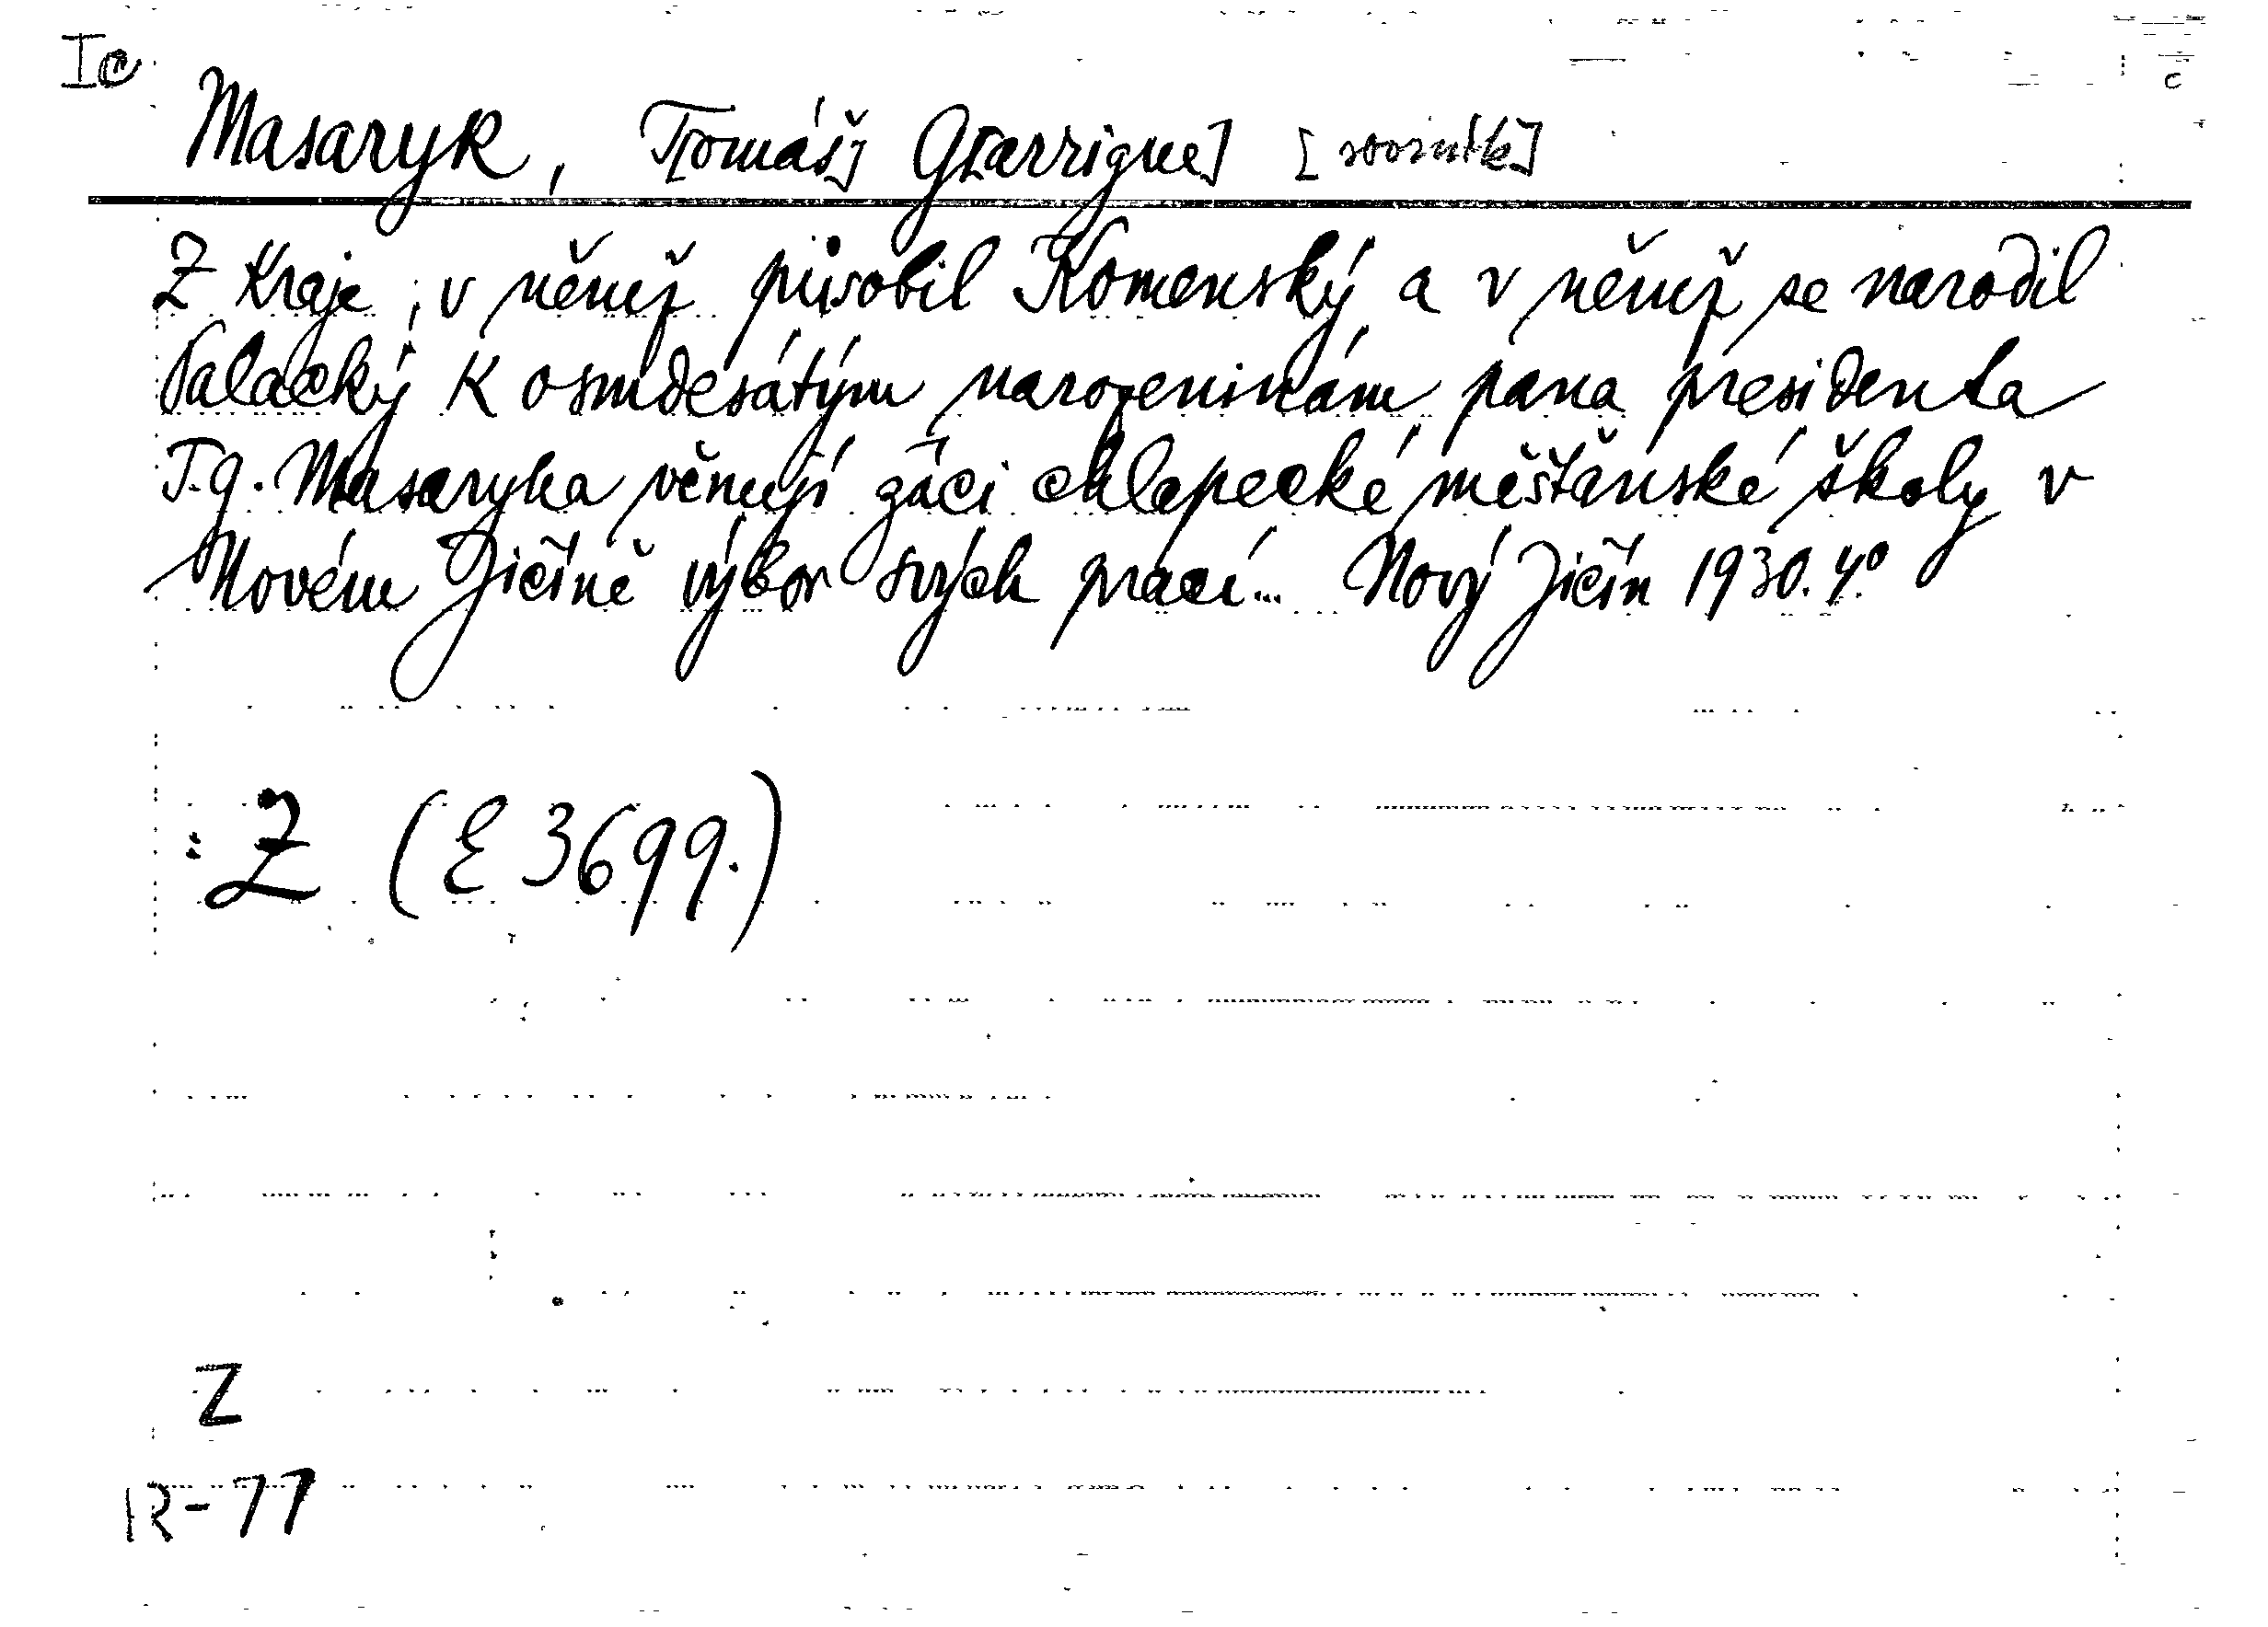 Ic
Masaryk, T[omáš] G[arrigue] [sborník]
Z kraje, v němž působil Komenský a v němž se narodil
Palacký K osmdesátým narozeninám pana presidenta
T.G. Masaryka věnují žáci chlapecké měšťanské školy v
Novém Jičíně výbor svých prací... Nový Jičín 1930. 4°
: Z (E 3699.)
Z
R-77